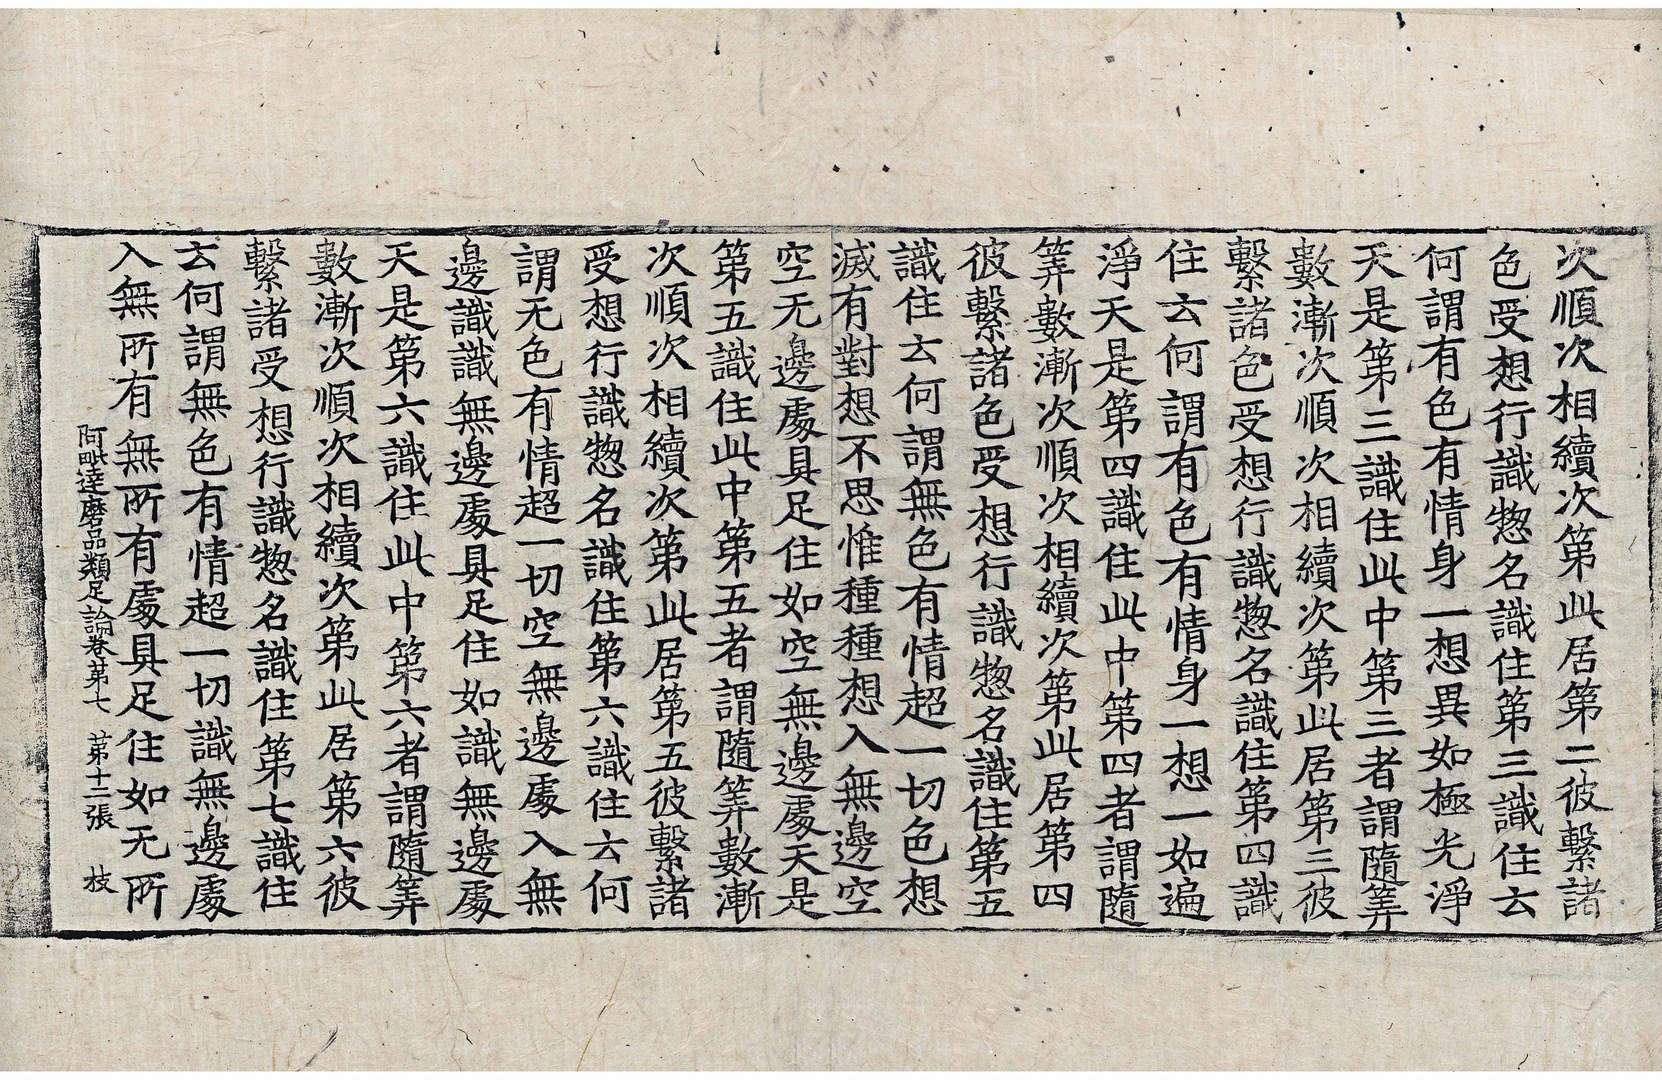 次順次相續次第此居第二彼繫諸
色受想行識惣名識住第三識住云
何謂有色有情身一想異如極光淨
天是第三識住此中第三者謂隨筭
數漸次順次相續次第此居第三彼
繫諸色受想行識惣名識住第四識
住云何謂有色有情身一想一如遍
淨天是第四識住此中第四者謂隨
筭數漸次順次相續次第此居第四
彼繫諸色受想行識惣名識住第五
識住云何謂無色有情超一切色想
滅有對想不思惟種種想入無邊空
空无邊處具足住如空無邊處天是
第五識住此中第五者謂隨筭數漸
次順次相續次第此居第五彼繫諸
受想行識惣名識住第六識住云何
謂无色有情超一切空無邊處入無
邊識識無邊處具足住如識無邊處
天是第六識住此中第六者謂隨筭
數漸次順次相續次第此居第六彼
繫諸受想行識惣名識住第七識住
云何謂無色有情超一切識無邊處
入無所有無所有處具足住如无所
阿毗達磨品類足論卷苐七 苐十二張 枝